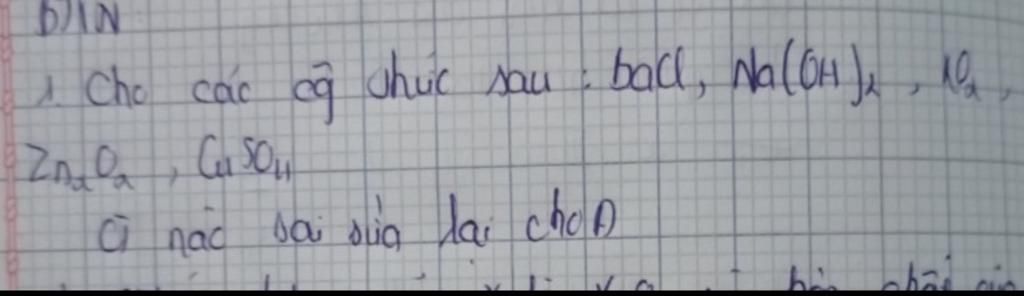 b) TN
1. Cho các cg thức sau : bacl, Na(OH)2, KO2,
Zn2O2, CuSO4
CT nào sai sửa lại cho Đ